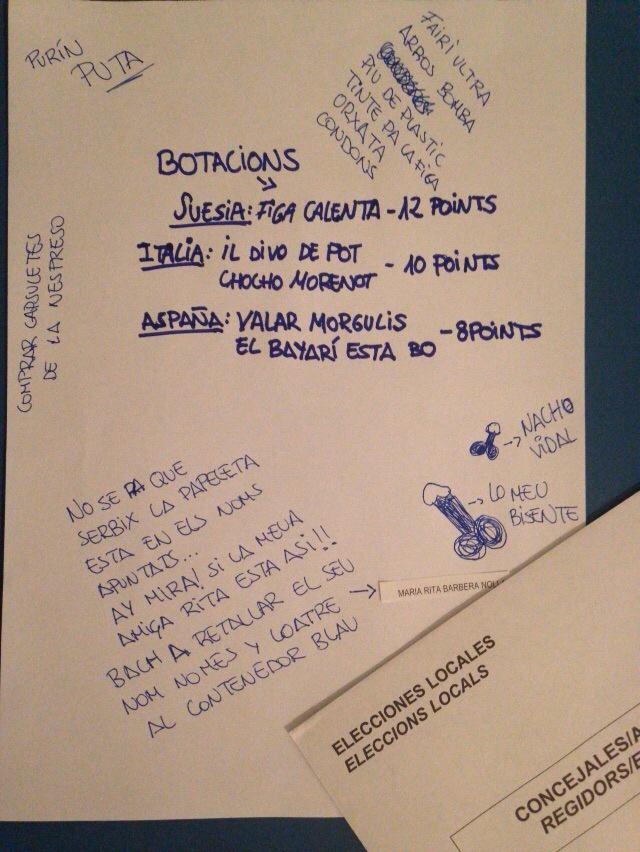 PURÍN
PUTA
FAIRI ULTRA
ARROS BOMBA
PIU DE PLASTIC
TINTE PA LA FIGA
ORXATA
CONDONS
BOTACIONS
SUESIA: FIGA CALENTA - 12 POINTS
ITALIA: IL DIVO DE POT
CHOCHO MORENOT - 10 POINTS
ASPAÑA: VALAR MORGULIS
EL BAYARÍ ESTA BO - 8 POINTS
COMPRAR CAPSULETES
DE LA NESPRESO
NACHO
VIDAL
LO MEU
BISENTE
NO SE PA QUE
SERBIX LA PAPELETA
ESTA EN ELS NOMS
APUNTATS...
AY MIRA! SI LA MEUA
AMIGA RITA ESTA ASI!!
BACH A RETALLAR EL SEU
NOM NOMES Y LOATRE
AL CONTENEDOR BLAU
MARIA RITA BARBERA
ELECCIONES LOCALES
ELECCIONS LOCALS
CONCEJALES/A
REGIDORS/E